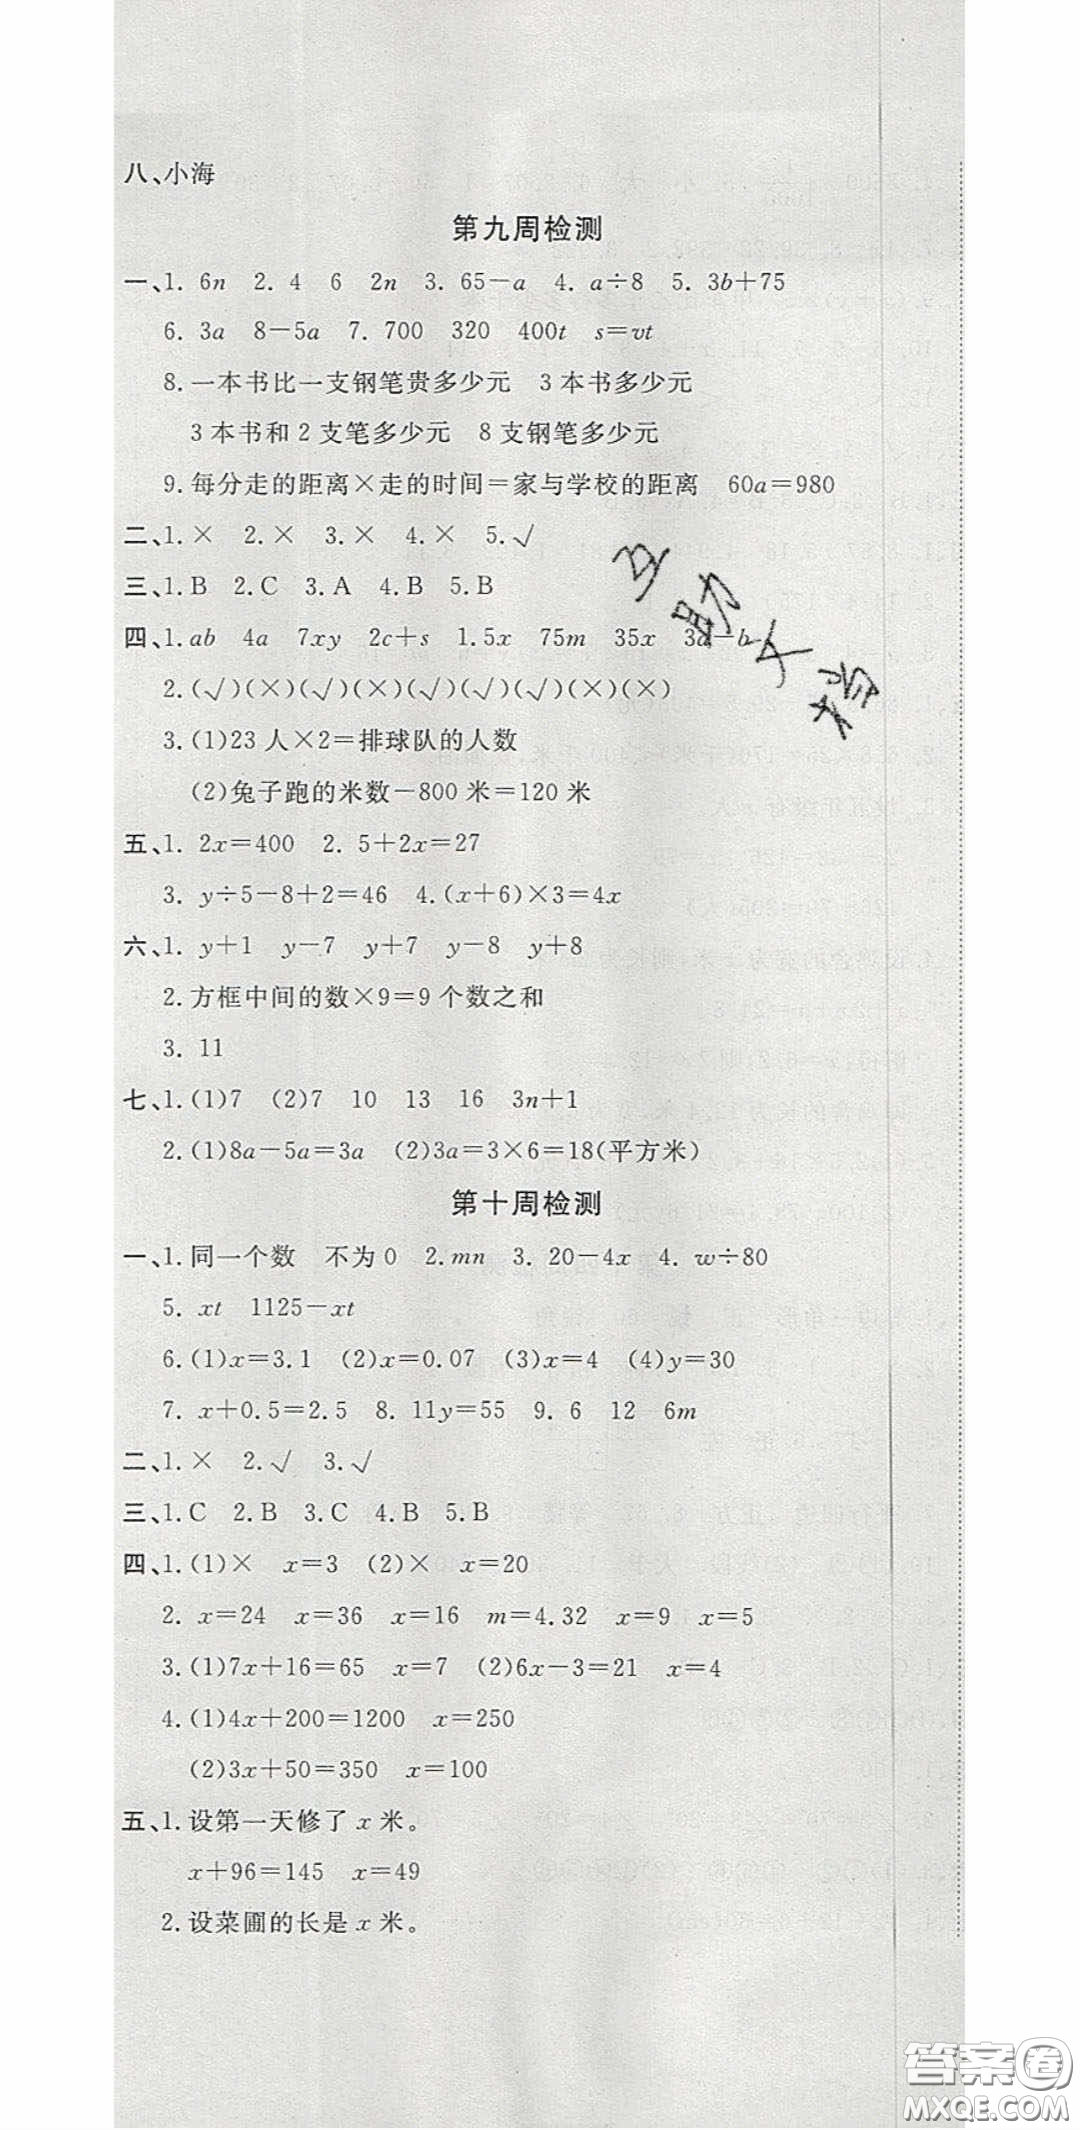 八、小海
第九周检测
一、1. 6n 2. 4 6 2n 3. 65－a 4. a÷8 5. 3b＋75
6. 3a 8－5a 7. 700 320 400t s＝vt
8. 一本书比一支钢笔贵多少元 3本书多少元
3本书和2支笔多少元 8支钢笔多少元
9. 每分走的距离×走的时间＝家与学校的距离 60a＝980
二、1. × 2. × 3. × 4. × 5. √
三、1. B 2. C 3. A 4. B 5. B
四、1. ab 4a 7xy 2c＋s 1.5x 75m 35x 3a－b
2. (√)(×)(√)(×)(√)(√)(√)(×)(×)
3. (1)23人×2＝排球队的人数
(2)兔子跑的米数－800米＝120米
五、1. 2x＝400 2. 5＋2x＝27
3. y÷5－8＋2＝46 4. (x＋6)×3＝4x
六、1. y＋1 y－7 y＋7 y－8 y＋8
2. 方框中间的数×9＝9个数之和
3. 11
七、1. (1)7 (2)7 10 13 16 3n＋1
2. (1)8a－5a＝3a (2)3a＝3×6＝18(平方米)
第十周检测
一、1. 同一个数 不为0 2. mn 3. 20－4x 4. w÷80
5. xt 1125－xt
6. (1)x＝3.1 (2)x＝0.07 (3)x＝4 (4)y＝30
7. x＋0.5＝2.5 8. 11y＝55 9. 6 12 6m
二、1. × 2. √ 3. √
三、1. C 2. B 3. C 4. B 5. B
四、1. (1)× x＝3 (2)× x＝20
2. x＝24 x＝36 x＝16 m＝4.32 x＝9 x＝5
3. (1)7x＋16＝65 x＝7 (2)6x－3＝21 x＝4
4. (1)4x＋200＝1200 x＝250
(2)3x＋50＝350 x＝100
五、1. 设第一天修了x米。
x＋96＝145 x＝49
2. 设菜圃的长是x米。
答案圈
MXQE.COM